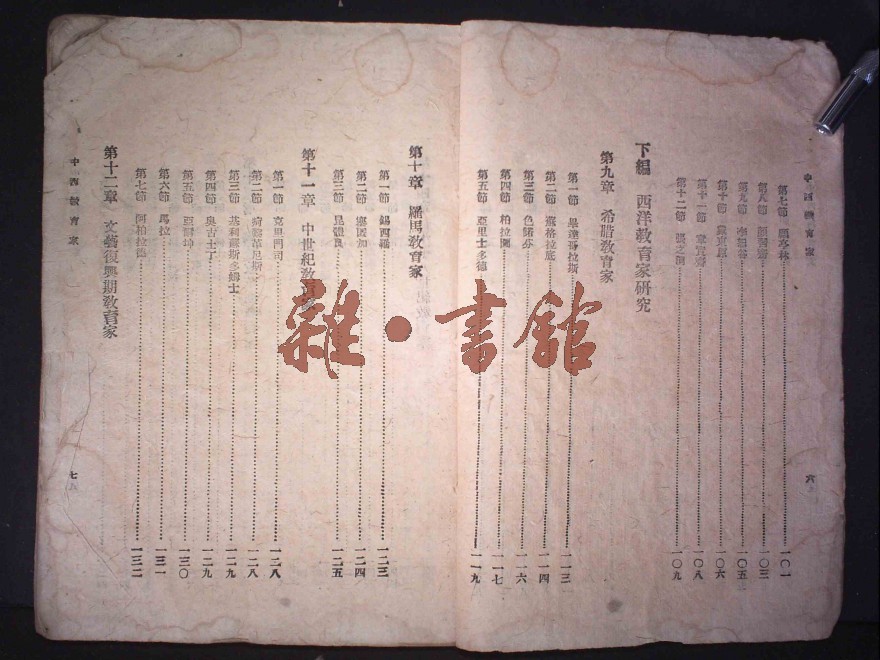 中西教育家
六
第七節 顧亭林 一〇一
第八節 顏習齋 一〇三
第九節 李恕谷 一〇五
第十節 戴東原 一〇六
第十一節 章實齋 一〇八
第十二節 張之洞 一〇九
下編 西洋教育家研究
第九章 希腊教育家
第一節 畢達哥拉斯 一一三
第二節 蘇格拉底 一一四
第三節 色諾芬 一一六
第四節 柏拉圖 一一七
第五節 亞里士多德 一一九
第十章 羅馬教育家
第一節 錫西羅 一二三
第二節 塞因加 一二四
第三節 昆體良 一二五
第十一章 中世紀教育家
第一節 克里門司 一二八
第二節 一二八
第三節 基利蘇斯多姆士 一二九
第四節 奥古士丁 一二九
第五節 亞爾坤 一三〇
第六節 馬拉 一三一
第七節 阿柏拉德 一三二
第十二章 文藝復興期教育家
中西教育家
七
雜·書館